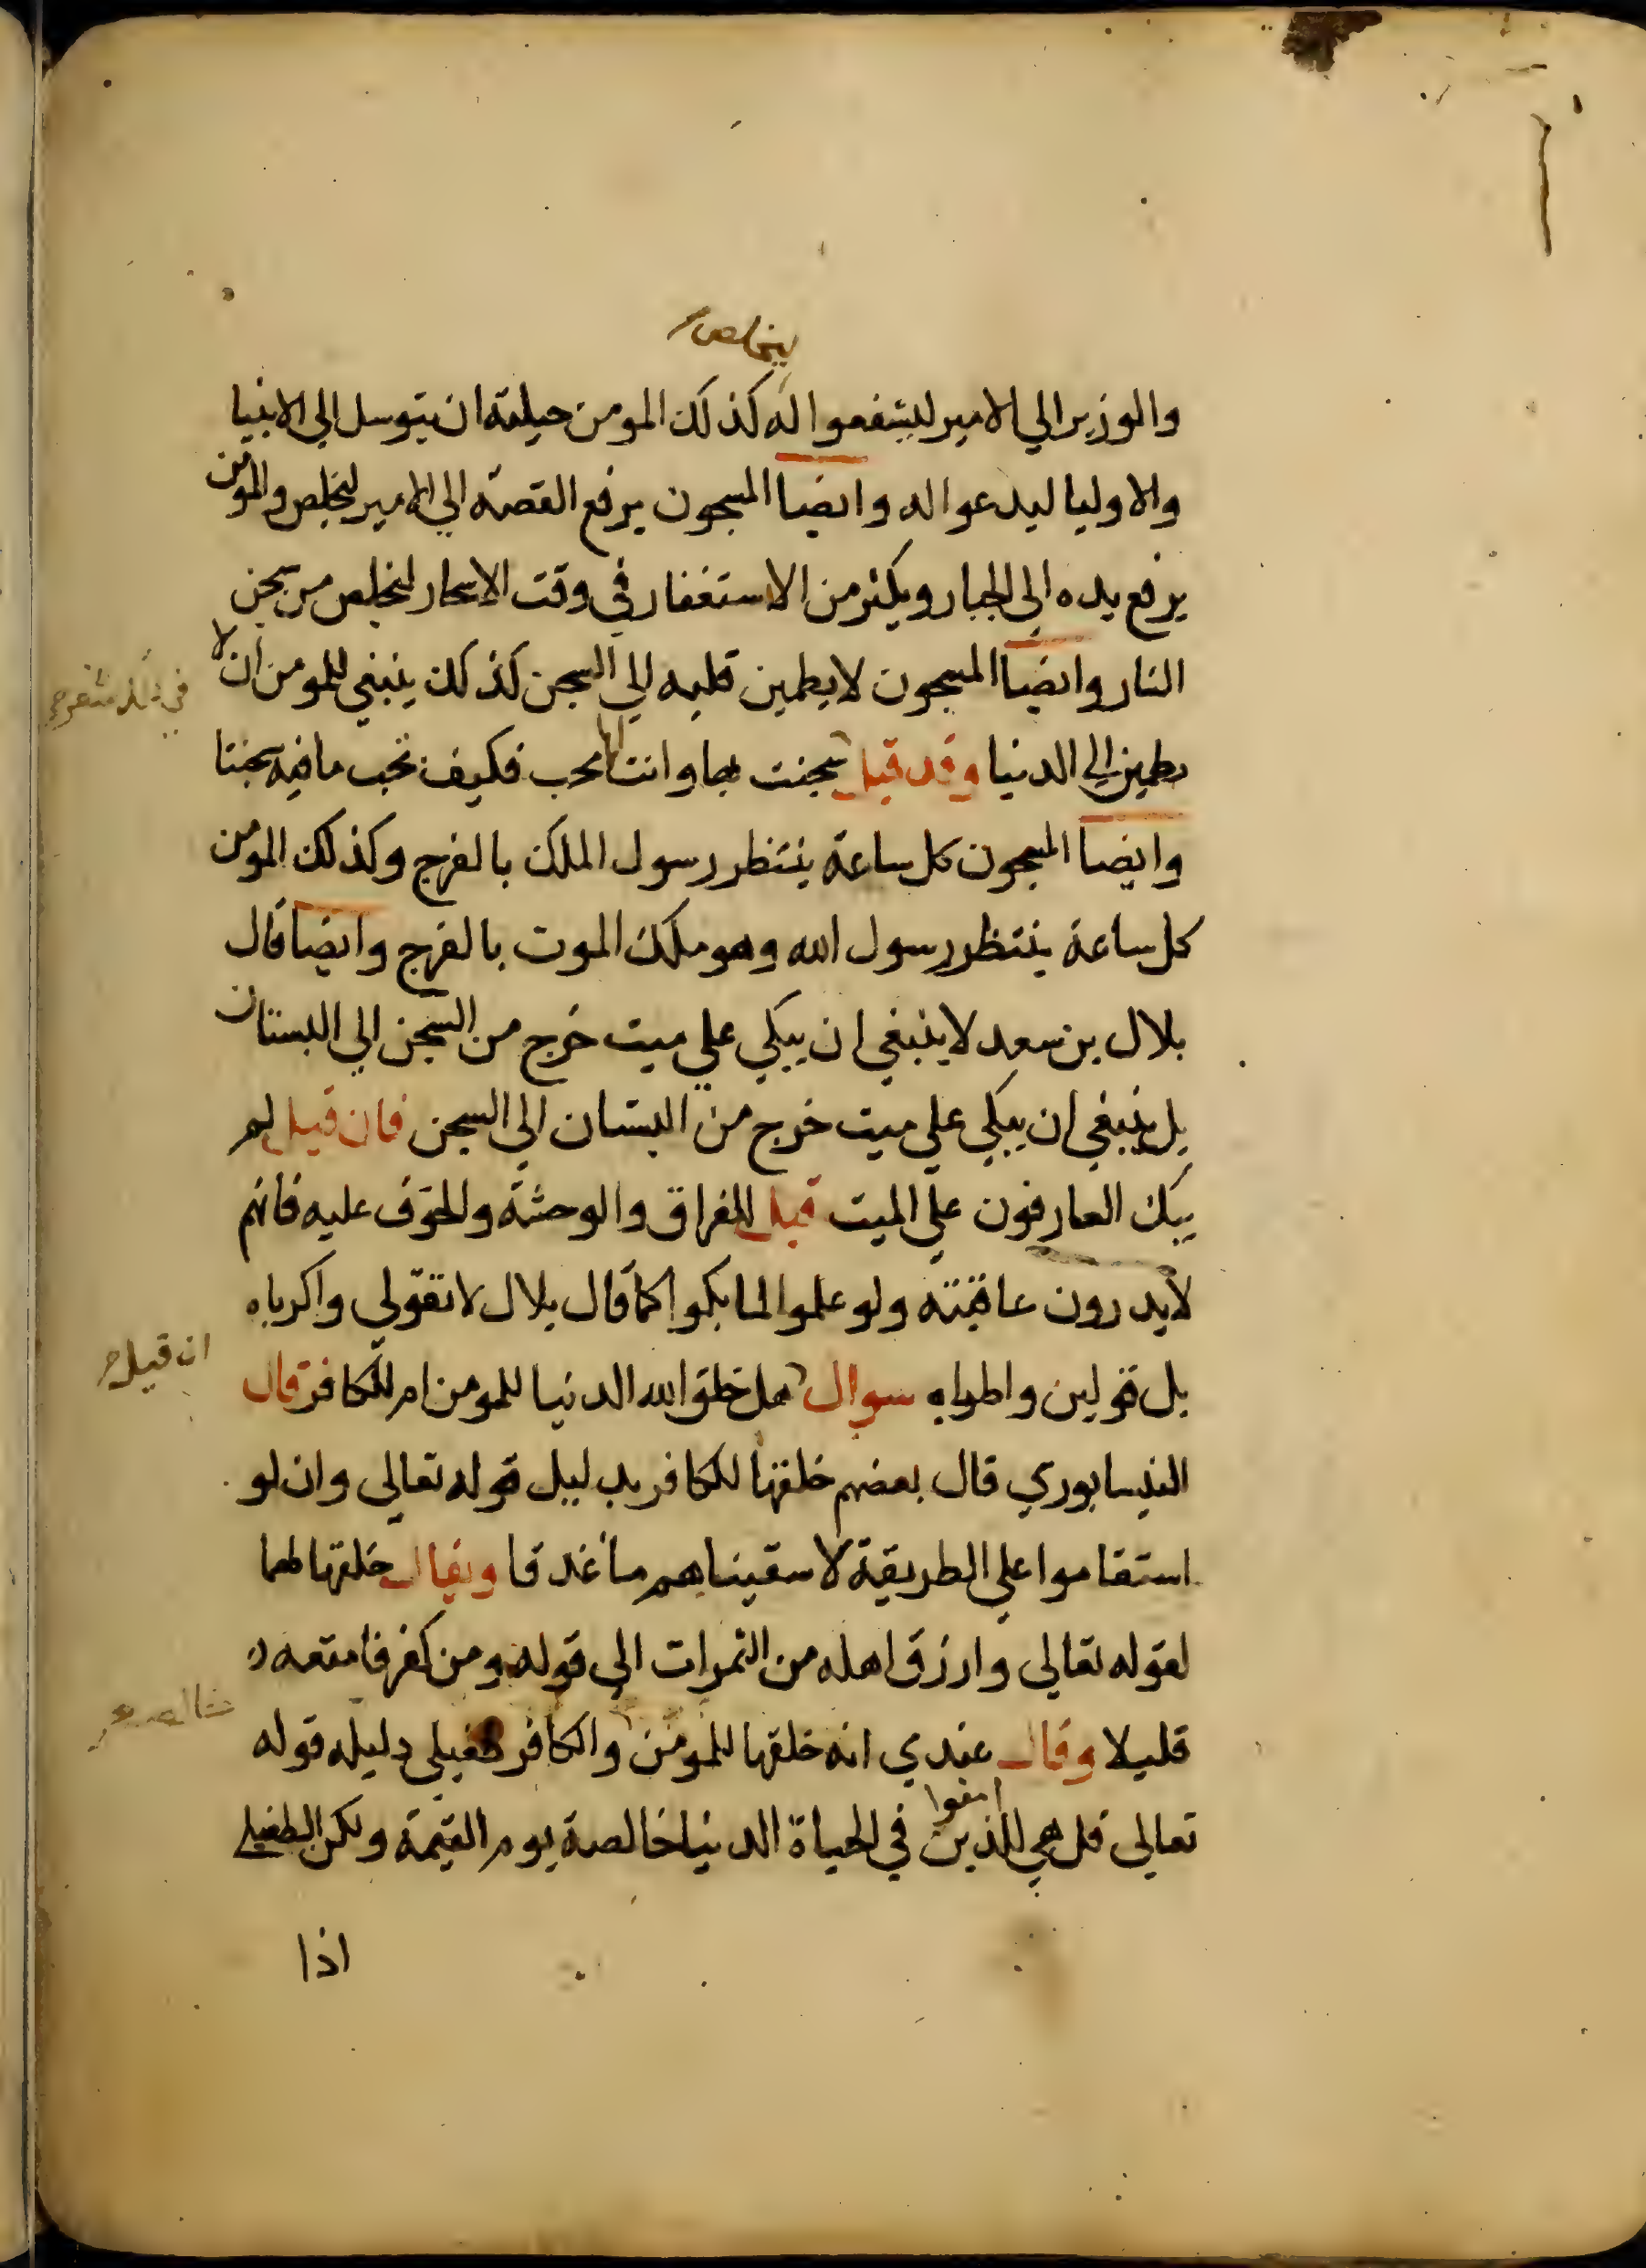 يتخلص
والوزير الي الامير ليشفعوا له كذلك المومن حيلته ان يتوسل الي الانبيا
والاوليا ليدعوا له وايضا المسجون يرفع القصة الي الامير ليخلص والمومن
يرفع يده الي الجبار ويكثر من الاستغفار في وقت الاسحار ليخلص من سجن
النار وايضا المسجون لا يطمين قلبه الي السجن كذلك ينبغي للمومن ان لا
يطمين الي الدنيا وقد قيل سجنت بها وانت لها محب فكيف تحب ما فيه سجنتا
وايضا المسجون كل ساعة ينتظر رسول الملك بالفرج وكذلك المومن
كل ساعة ينتظر رسول الله وهو ملك الموت بالفرج وايضا قال
بلال بن سعد لا ينبغي ان يبكي علي ميت خرج من السجن الي البستان
بل ينبغي ان يبكي علي ميت خرج من البستان الي السجن فان قيل لم
يبك العارفون علي الميت قيل للفراق والوحشة والخوف عليه فانهم
لا يدرون عاقبته ولو علموا لما بكوا كما قال بلال لا تقولي واكرباه
بل تقولين واطرباه سوال هل خلق الله الدنيا للمومن ام للكافر قال
النيسابوري قال بعضهم خلقها للكافر بدليل قوله تعالي وان لو
استقاموا علي الطريقة لاسقيناهم ماغدقا ويقال خلقها لهما
لقوله تعالي وارزق اهله من الثمرات الي قوله ومن كفر فامتعه
قليلا وقال عندي انه خلقها للمومن والكافر طفيلي دليله قوله
تعالي قل هي للذين امنوا في الحياة الدنيا خالصة يوم القيمة ولكن الطفيلي
اذا
ان قيل